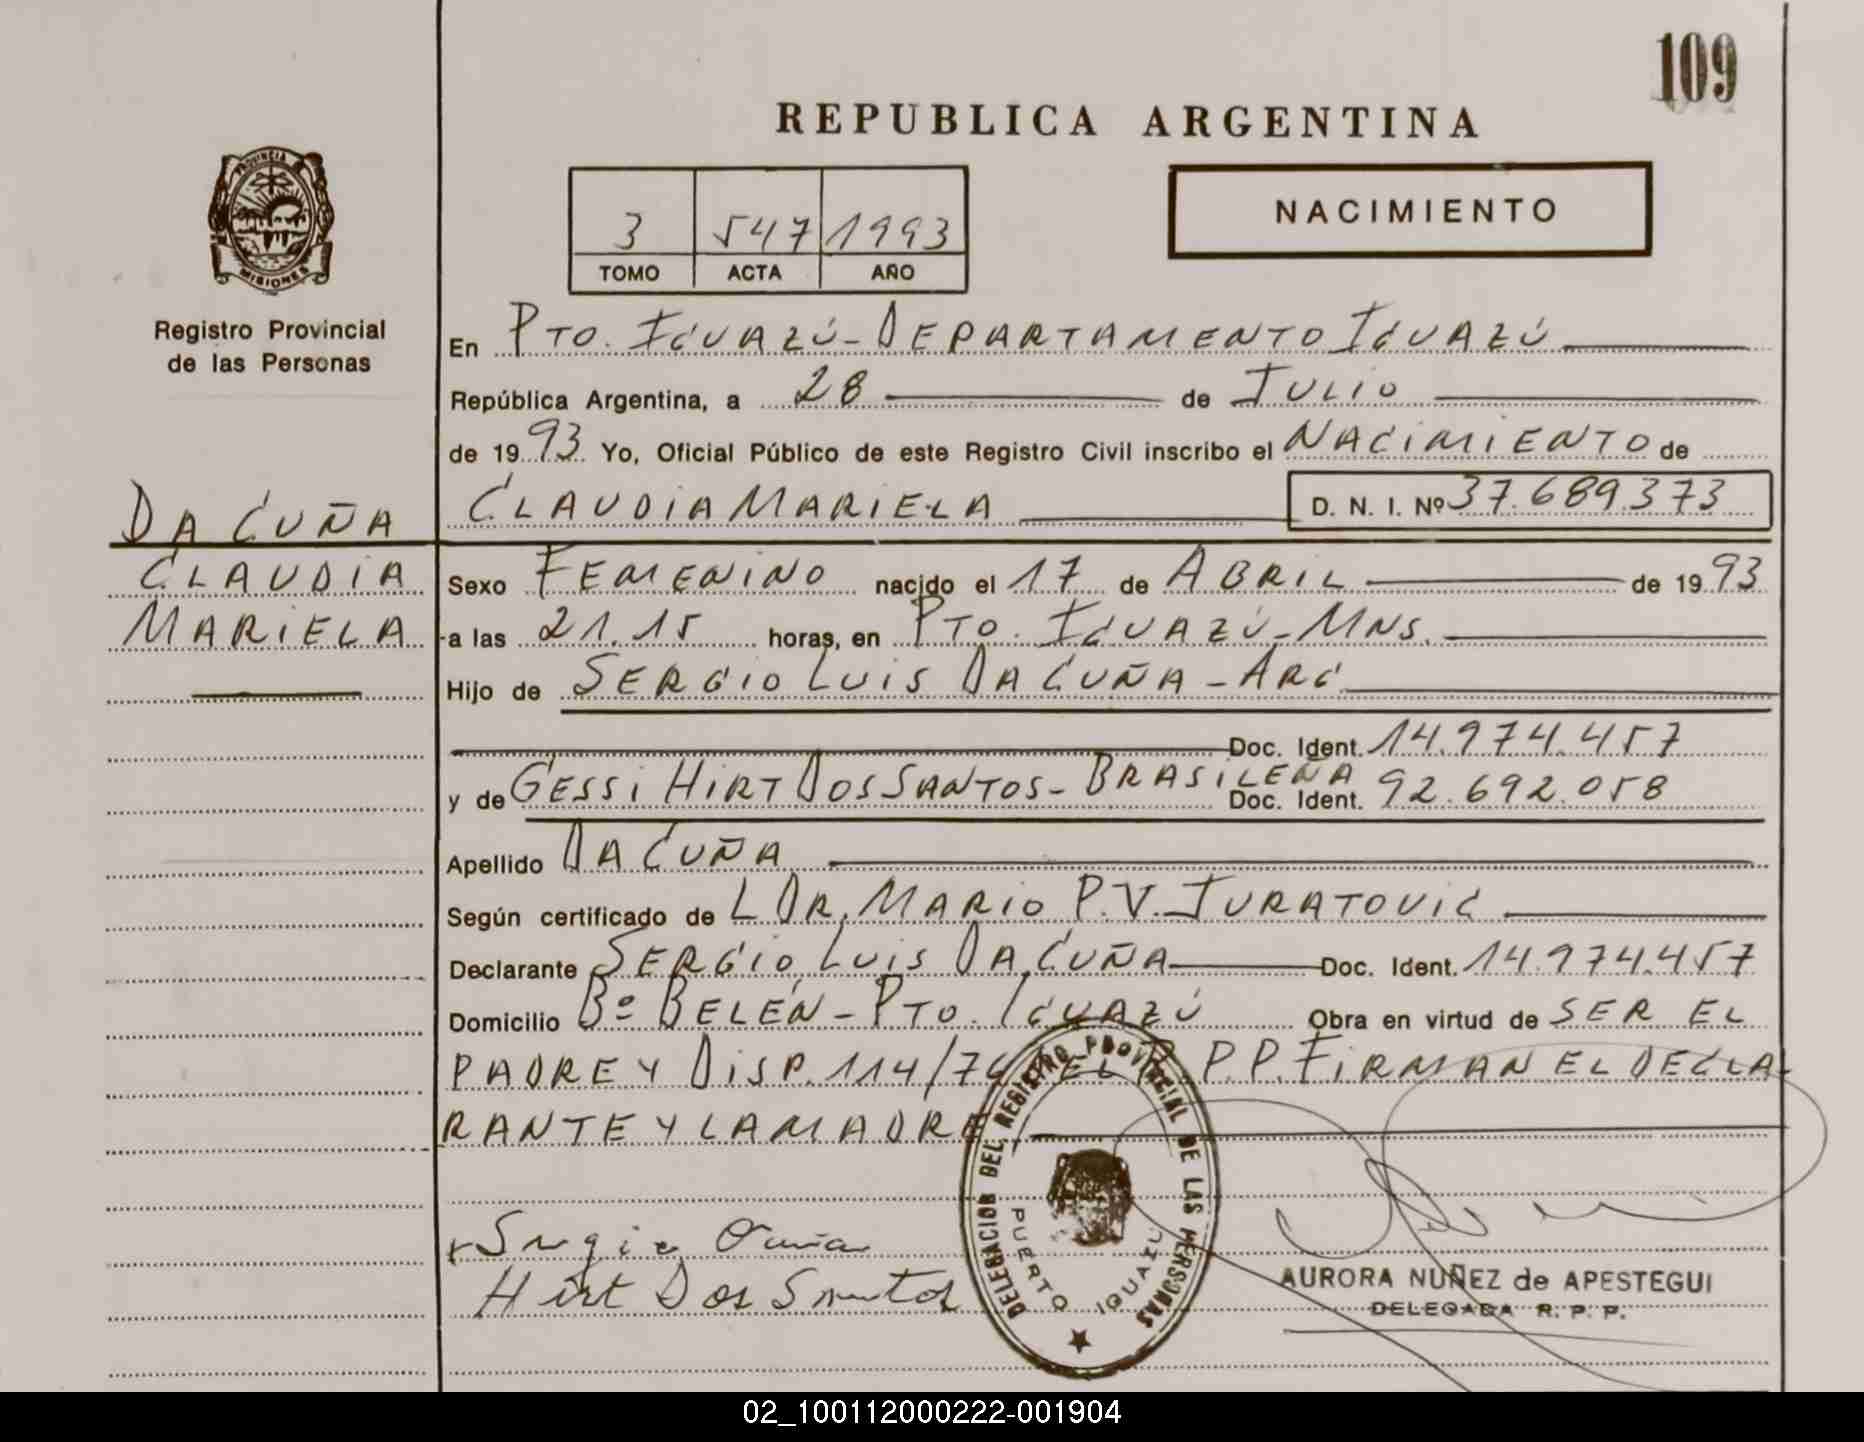 109
REPUBLICA ARGENTINA
PROVINCIA
MISIONES
Registro Provincial
de las Personas
3 547 1993
TOMO ACTA AÑO
NACIMIENTO
En PTO. IGUAZÚ - DEPARTAMENTO IGUAZÚ
República Argentina, a 28 de JULIO
de 1993 Yo, Oficial Público de este Registro Civil inscribo el NACIMIENTO de
CLAUDIA MARIELA D. N. I. Nº 37.689.373
DA CUÑA
CLAUDIA
MARIELA
Sexo FEMENINO nacido el 17 de ABRIL de 1993
a las 21.15 horas, en PTO. IGUAZÚ - MNS.
Hijo de SERGIO LUIS DA CUÑA - ARG
Doc. Ident. 14.974.457
y de GESSI HIRT DOS SANTOS - BRASILEÑA Doc. Ident. 92.692.058
Apellido DA CUÑA
Según certificado de L DR. MARIO P.V. JURATOVIC
Declarante SERGIO LUIS DA CUÑA Doc. Ident. 14.974.457
Domicilio Bº BELÉN - PTO. IGUAZÚ Obra en virtud de SER EL
PADRE Y DISP. 114/74 DEL R.P.P. FIRMAN EL DECLA-
RANTE Y LA MADRE
DELEGACION DEL REGISTRO PROVINCIAL DE LAS PERSONAS
PUERTO IGUAZU
Sergio Cuña
Hirt Dos Santos
AURORA NUÑEZ de APESTEGUI
DELEGADA R. P. P.
02_100112000222-001904